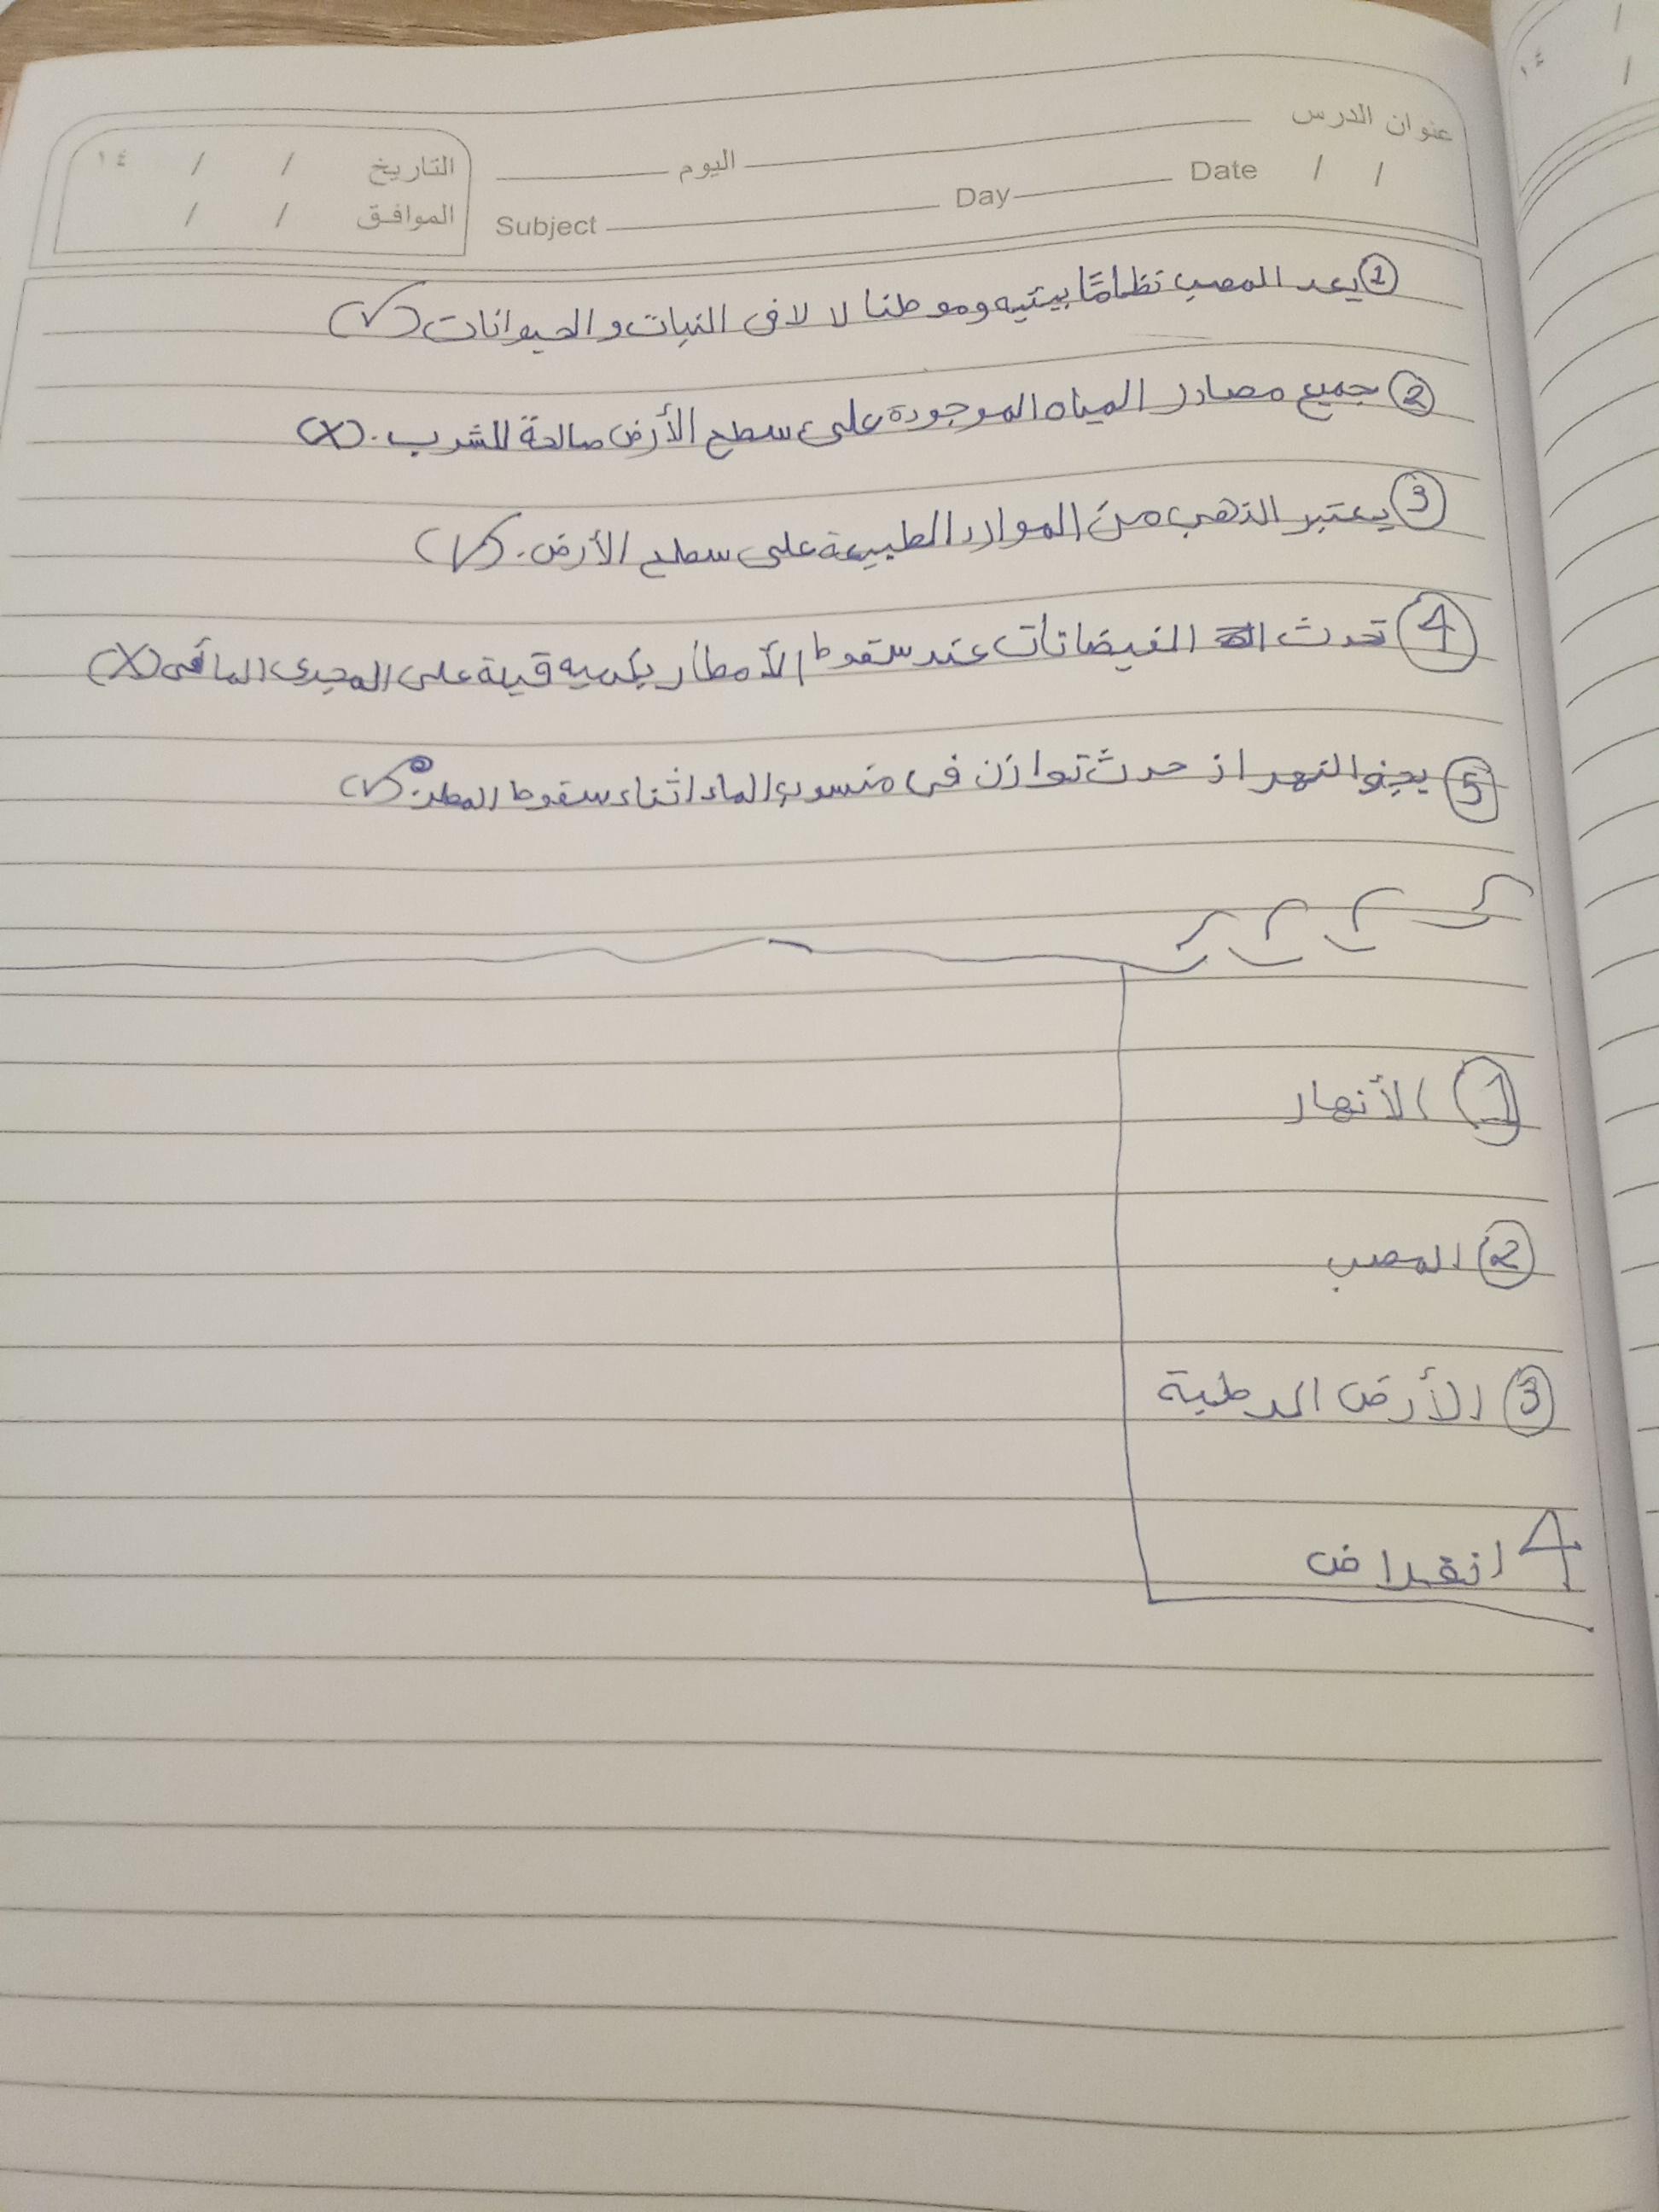 عنوان الدرس
اليوم
التاريخ / / ١٤
Date / /
Day
Subject
الموافق / /
① يعد المصب نظامًا بيئيه وموطنا لا لافى النبات والحيوانات (✓)
② جميع مصادر المياه الموجودة على سطح الأرض صالحة للشرب. (X)
③ يعتبر الذهب من الموارد الطبيعة على سطح الأرض. (✓)
④ تحدث الفيضانات عند سقوط الأمطار بكميه قيلة على المجرى المائى (X)
⑤ النهر از حدث توازن فى منسوب الماء اثناء سقوط المطر. (✓)
① الأنهار
② المصب
③ الأرض الرطبة
4 انقراض